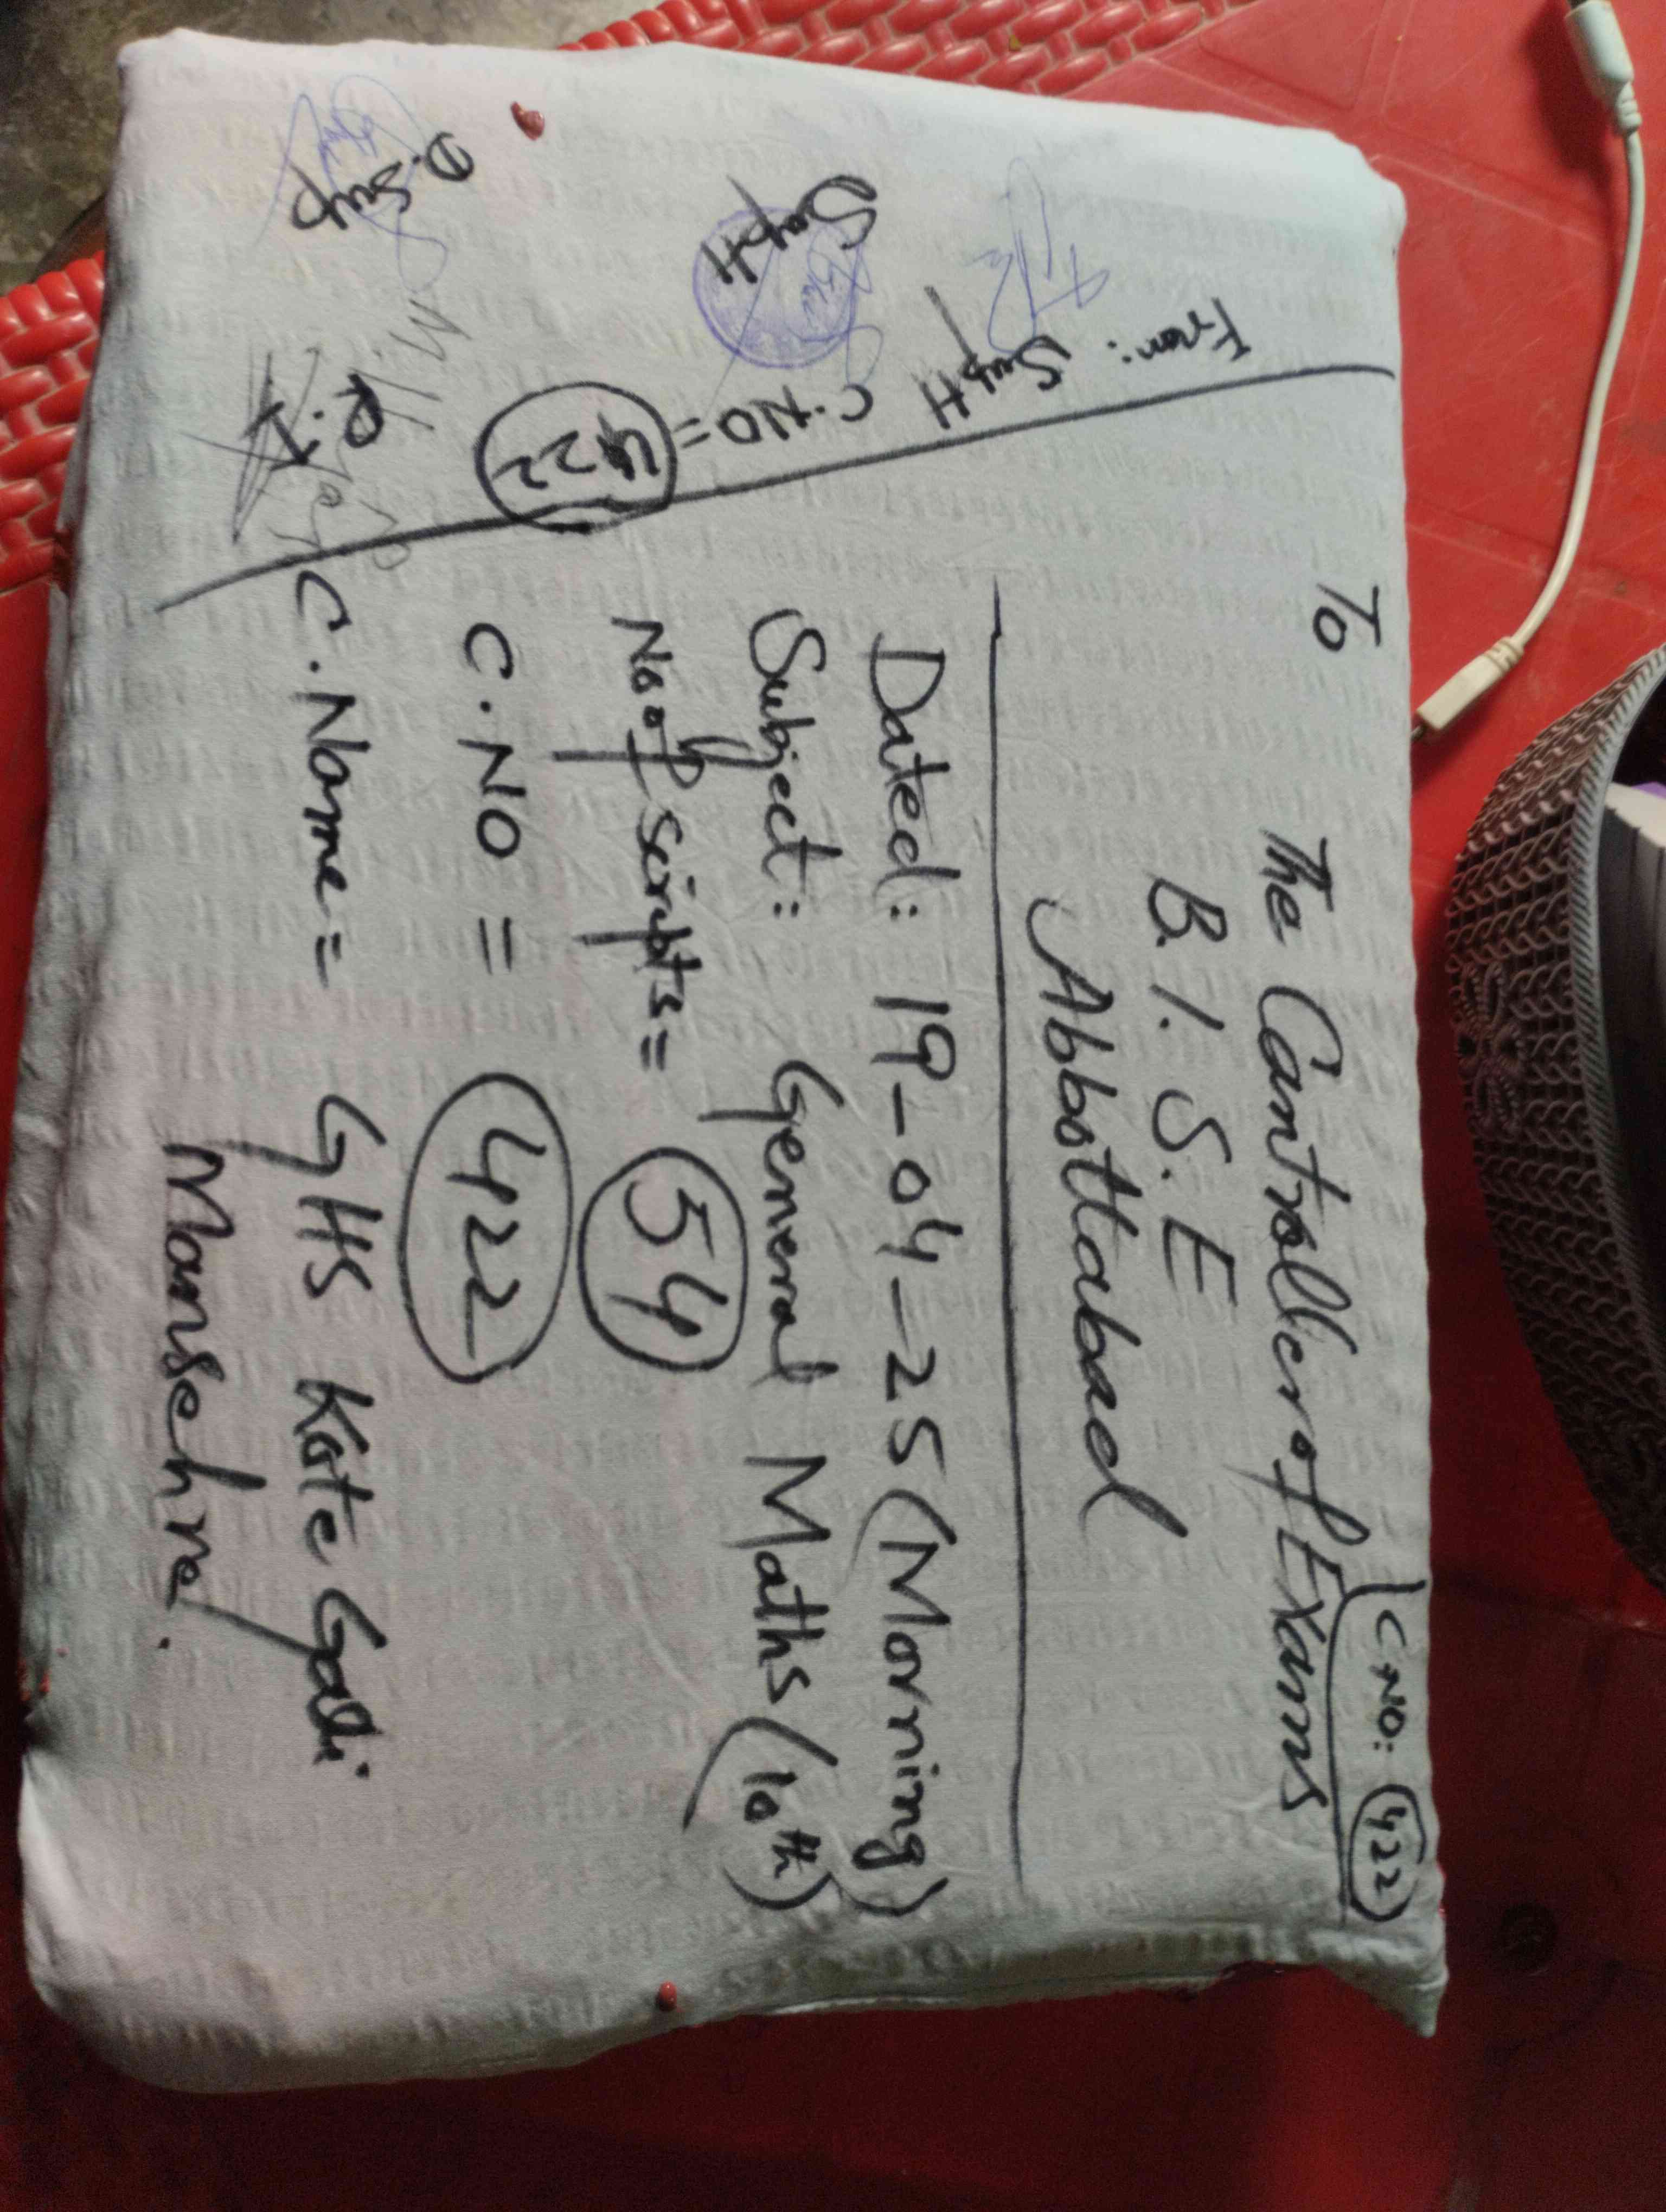 C.NO: 422
To
The Controller of Exams
B.I.S.E
Abbottabad
Dated: 19-04-25 (Morning)
Subject: General Maths (10th)
No of scripts = 54
C.NO = 422
C.Name = GHS Kote Galli
Mansehra.
From: Supt
C.NO = 422
Supt
D.Sup
R.I